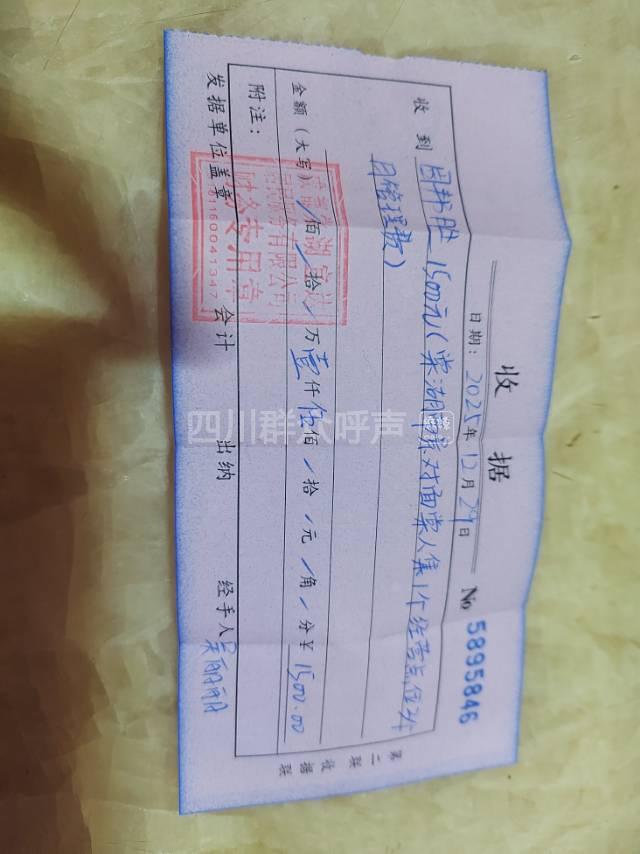 收 据
日期：2025年12月29日
No 5895846
收到 1500元(棠湖 对面棠人集1个经营点位
管理费)
金额（大写）/佰/拾/万壹仟伍佰/拾/元/角/分￥1500.00
附注：
发据单位盖章 会计 出纳 经手人
第二联 收据联
有限公司
财务专用章
四川群众呼声